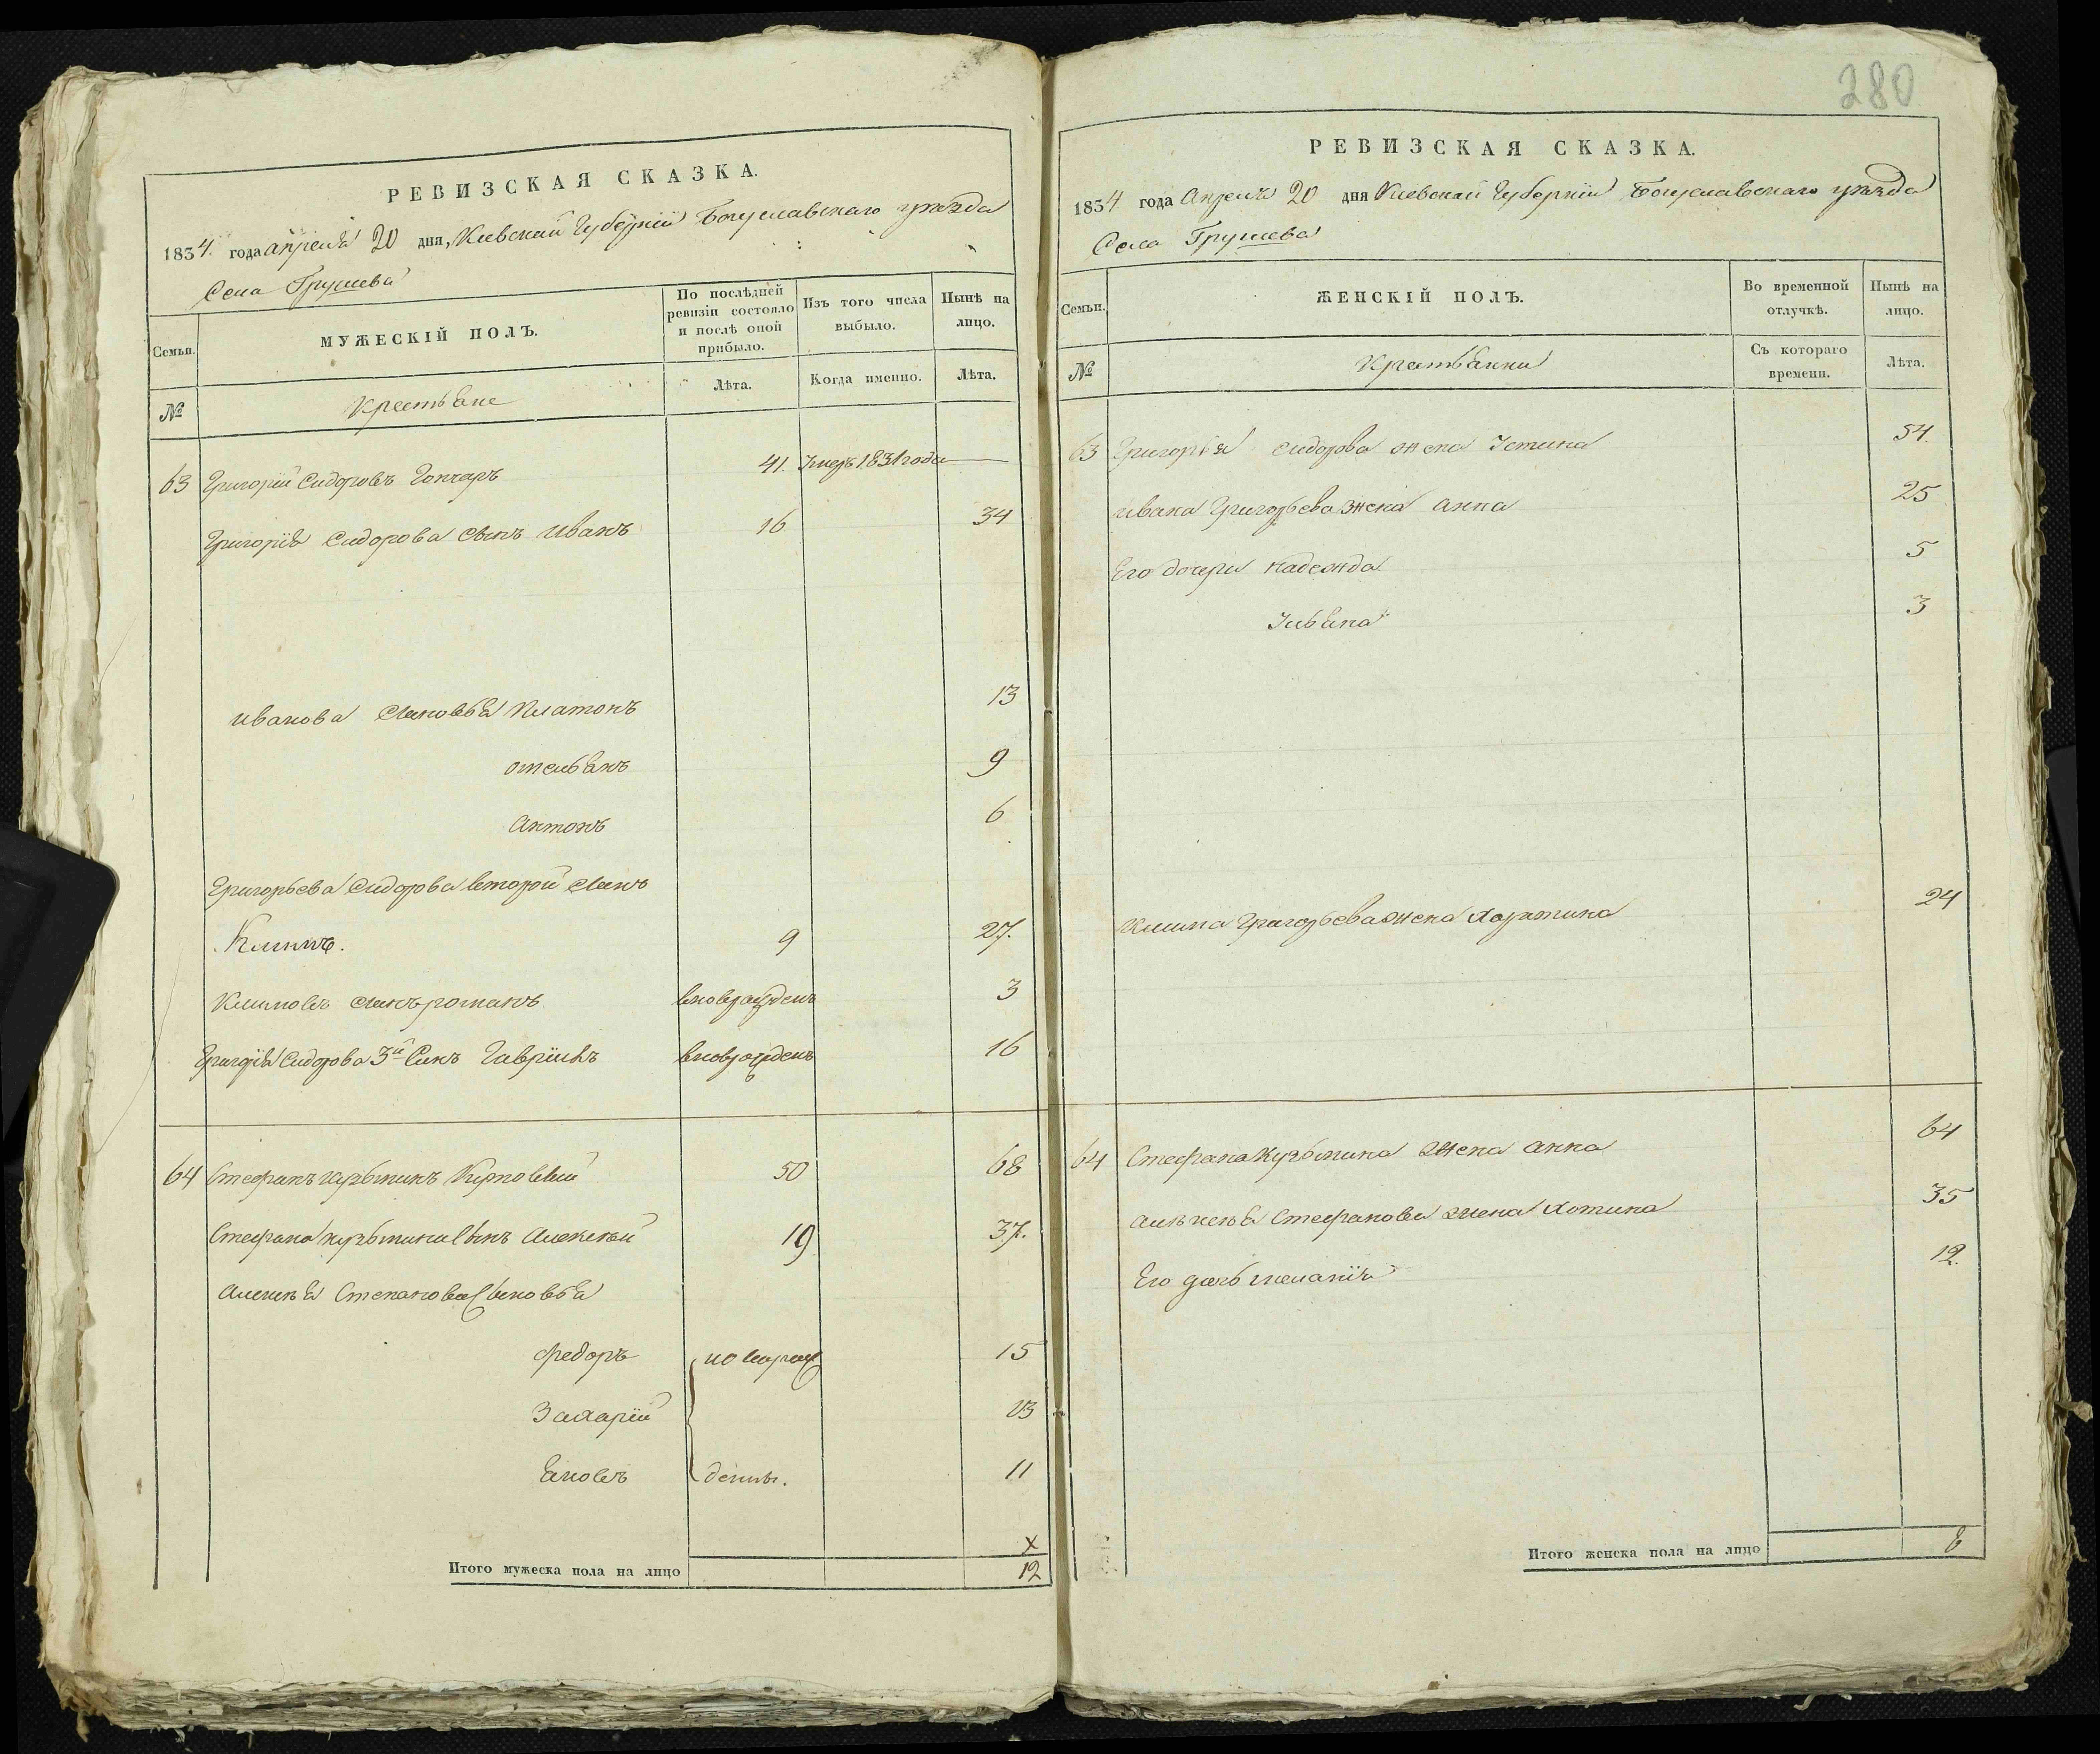 280
РЕВИЗСКАЯ СКАЗКА.
1834. года апреля 20 дня, Киевской Губерніи Богуславскаго уѣзда
Села Грушева
Семьи.
МУЖЕСКІЙ ПОЛЪ.
По послѣдней ревизіи состояло и послѣ оной прибыло.
Изъ того числа выбыло.
Нынѣ на лицо.
№
Крестьяне
Лѣта.
Когда именно.
Лѣта.
63 Григорій Сидоровъ Гончаръ 41. Умеръ 1831 года
Григорія Сидорова Сынъ Иванъ 16 34
Иванова Сыновья Платонъ 13
омельянъ 9
Антонъ 6
Григорьева Сидорова второй Сынъ
Климъ. 9 27.
Климовъ Сынъ романъ вновь рожденъ 3
Григорія Сидорова 3й Сынъ Гавріилъ вновь рожденъ 16
64 Стефанъ кузьминъ 50 68
Стефана кузьмина Сынъ Алексѣй 19 37.
Алексѣя Степанова Сыновья
Федоръ новорож 15
Захарій 13
Яковъ дены. 11
х
Итого мужеска пола на лицо 12
РЕВИЗСКАЯ СКАЗКА.
1834 года Апреля 20 дня Киевской Губерніи Богуславскаго уѣзда
Села Грушева
Семьи.
ЖЕНСКІЙ ПОЛЪ.
Во временной отлучкѣ.
Нынѣ на лицо.
№
Крестьянки
Съ котораго времени.
Лѣта.
63 Григорья Сидорова жена Устина 54.
Ивана Григорьева жена Анна 25
Его дочери надежда 5
Ульяна 3
Клима Григорьева жена Хортина 24
64 Стефана Кузьмина жена Анна 64
Алексѣя Стефанова жена Хотина 35
Его дочь меланія 12.
Итого женска пола на лицо 8